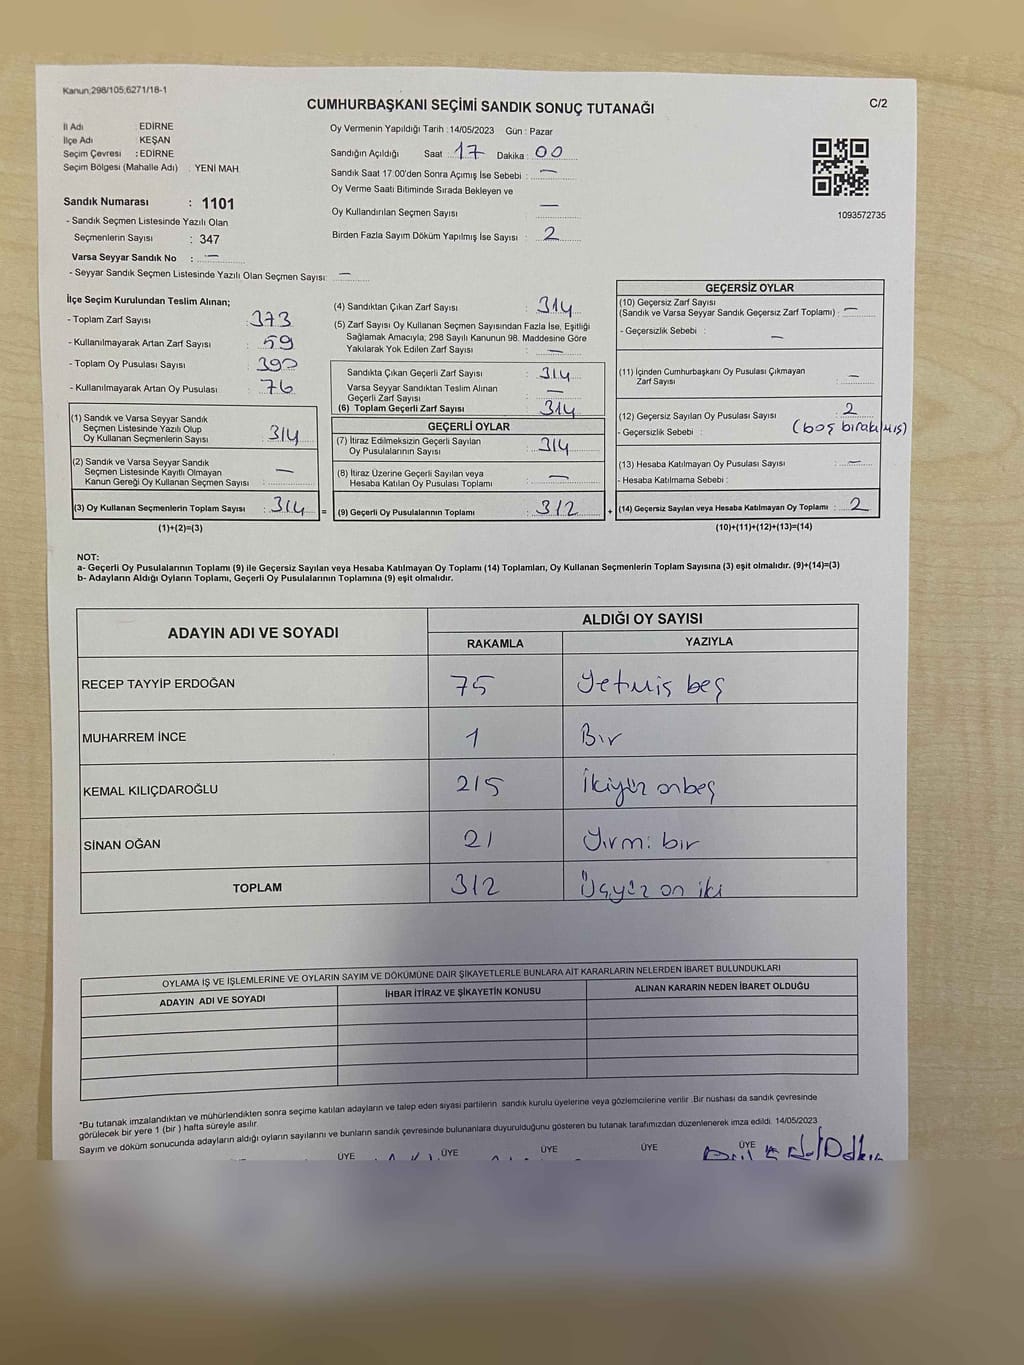 Kanun;298/105,6271/18-1
CUMHURBAŞKANI SEÇİMİ SANDIK SONUÇ TUTANAĞI
C/2
İl Adı : EDİRNE
İlçe Adı : KEŞAN
Seçim Çevresi : EDİRNE
Seçim Bölgesi (Mahalle Adı) : YENİ MAH.
Sandık Numarası : 1101
- Sandık Seçmen Listesinde Yazılı Olan
Seçmenlerin Sayısı : 347
Varsa Seyyar Sandık No : —
- Seyyar Sandık Seçmen Listesinde Yazılı Olan Seçmen Sayısı: —
Oy Vermenin Yapıldığı Tarih : 14/05/2023 Gün : Pazar
Sandığın Açıldığı Saat : 17 Dakika : 00
Sandık Saat 17:00'den Sonra Açımış İse Sebebi : —
Oy Verme Saati Bitiminde Sırada Bekleyen ve
Oy Kullandırılan Seçmen Sayısı : —
Birden Fazla Sayım Döküm Yapılmış İse Sayısı : 2
1093572735
İlçe Seçim Kurulundan Teslim Alınan;
- Toplam Zarf Sayısı : 373
- Kullanılmayarak Artan Zarf Sayısı : 59
- Toplam Oy Pusulası Sayısı : 390
- Kullanılmayarak Artan Oy Pusulası : 76
(1) Sandık ve Varsa Seyyar Sandık
Seçmen Listesinde Yazılı Olup
Oy Kullanan Seçmenlerin Sayısı : 314
(2) Sandık ve Varsa Seyyar Sandık
Seçmen Listesinde Kayıtlı Olmayan
Kanun Gereği Oy Kullanan Seçmen Sayısı : —
(3) Oy Kullanan Seçmenlerin Toplam Sayısı : 314 =
(1)+(2)=(3)
(4) Sandıktan Çıkan Zarf Sayısı : 314
(5) Zarf Sayısı Oy Kullanan Seçmen Sayısından Fazla İse, Eşitliği
Sağlamak Amacıyla, 298 Sayılı Kanunun 98. Maddesine Göre
Yakılarak Yok Edilen Zarf Sayısı : —
Sandıkta Çıkan Geçerli Zarf Sayısı : 314
Varsa Seyyar Sandıktan Teslim Alınan
Geçerli Zarf Sayısı : —
(6) Toplam Geçerli Zarf Sayısı : 314
GEÇERLİ OYLAR
(7) İtiraz Edilmeksizin Geçerli Sayılan
Oy Pusulalarının Sayısı : 314
(8) İtiraz Üzerine Geçerli Sayılan veya
Hesaba Katılan Oy Pusulası Toplamı : —
(9) Geçerli Oy Pusulalarının Toplamı : 312 +
GEÇERSİZ OYLAR
(10) Geçersiz Zarf Sayısı
(Sandık ve Varsa Seyyar Sandık Geçersiz Zarf Toplamı) : —
- Geçersizlik Sebebi : —
(11) İçinden Cumhurbaşkanı Oy Pusulası Çıkmayan
Zarf Sayısı : —
(12) Geçersiz Sayılan Oy Pusulası Sayısı : 2
- Geçersizlik Sebebi : (boş bırakılmış)
(13) Hesaba Katılmayan Oy Pusulası Sayısı : —
- Hesaba Katılmama Sebebi :
(14) Geçersiz Sayılan veya Hesaba Katılmayan Oy Toplamı : 2
(10)+(11)+(12)+(13)=(14)
NOT:
a- Geçerli Oy Pusulalarının Toplamı (9) ile Geçersiz Sayılan veya Hesaba Katılmayan Oy Toplamı (14) Toplamları, Oy Kullanan Seçmenlerin Toplam Sayısına (3) eşit olmalıdır. (9)+(14)=(3)
b- Adayların Aldığı Oyların Toplamı, Geçerli Oy Pusulalarının Toplamına (9) eşit olmalıdır.
ADAYIN ADI VE SOYADI
ALDIĞI OY SAYISI
RAKAMLA YAZIYLA
RECEP TAYYİP ERDOĞAN 75 Yetmiş beş
MUHARREM İNCE 1 Bir
KEMAL KILIÇDAROĞLU 215 İkiyüz onbeş
SİNAN OĞAN 21 Yirmi bir
TOPLAM 312 Üçyüz on iki
OYLAMA İŞ VE İŞLEMLERİNE VE OYLARIN SAYIM VE DÖKÜMÜNE DAİR ŞİKAYETLERLE BUNLARA AİT KARARLARIN NELERDEN İBARET BULUNDUKLARI
ADAYIN ADI VE SOYADI İHBAR İTİRAZ VE ŞİKAYETİN KONUSU ALINAN KARARIN NEDEN İBARET OLDUĞU
*Bu tutanak imzalandıktan ve mühürlendikten sonra seçime katılan adayların ve talep eden siyasi partilerin sandık kurulu üyelerine veya gözlemcilerine verilir .Bir nüshası da sandık çevresinde
görülecek bir yere 1 (bir ) hafta süreyle asılır.
Sayım ve döküm sonucunda adayların aldığı oyların sayılarını ve bunların sandık çevresinde bulunanlara duyurulduğunu gösteren bu tutanak tarafımızdan düzenlenerek imza edildi. 14/05/2023
ÜYE ÜYE ÜYE ÜYE ÜYE